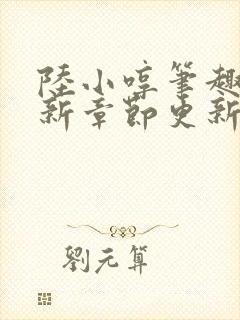 陸小啍筆趣
新章節更新
劉元算